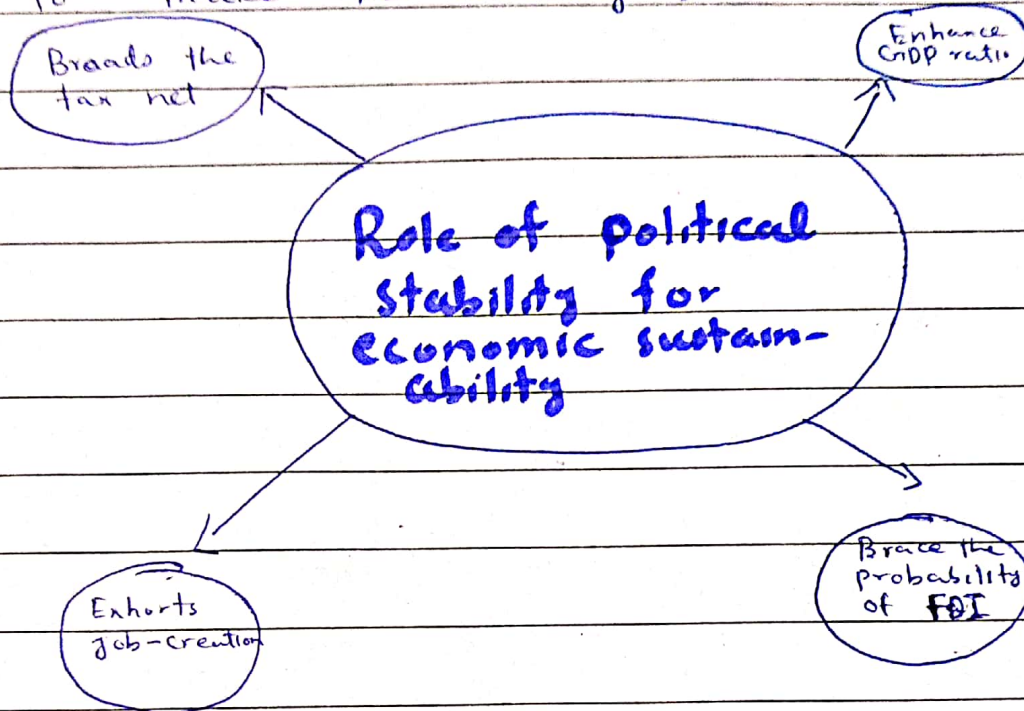 Broads the
tax net
Enhance
GDP ratio
Role of political
stability for
economic sustain-
ability
Exhorts
job-creation
Brace the
probability
of FDI